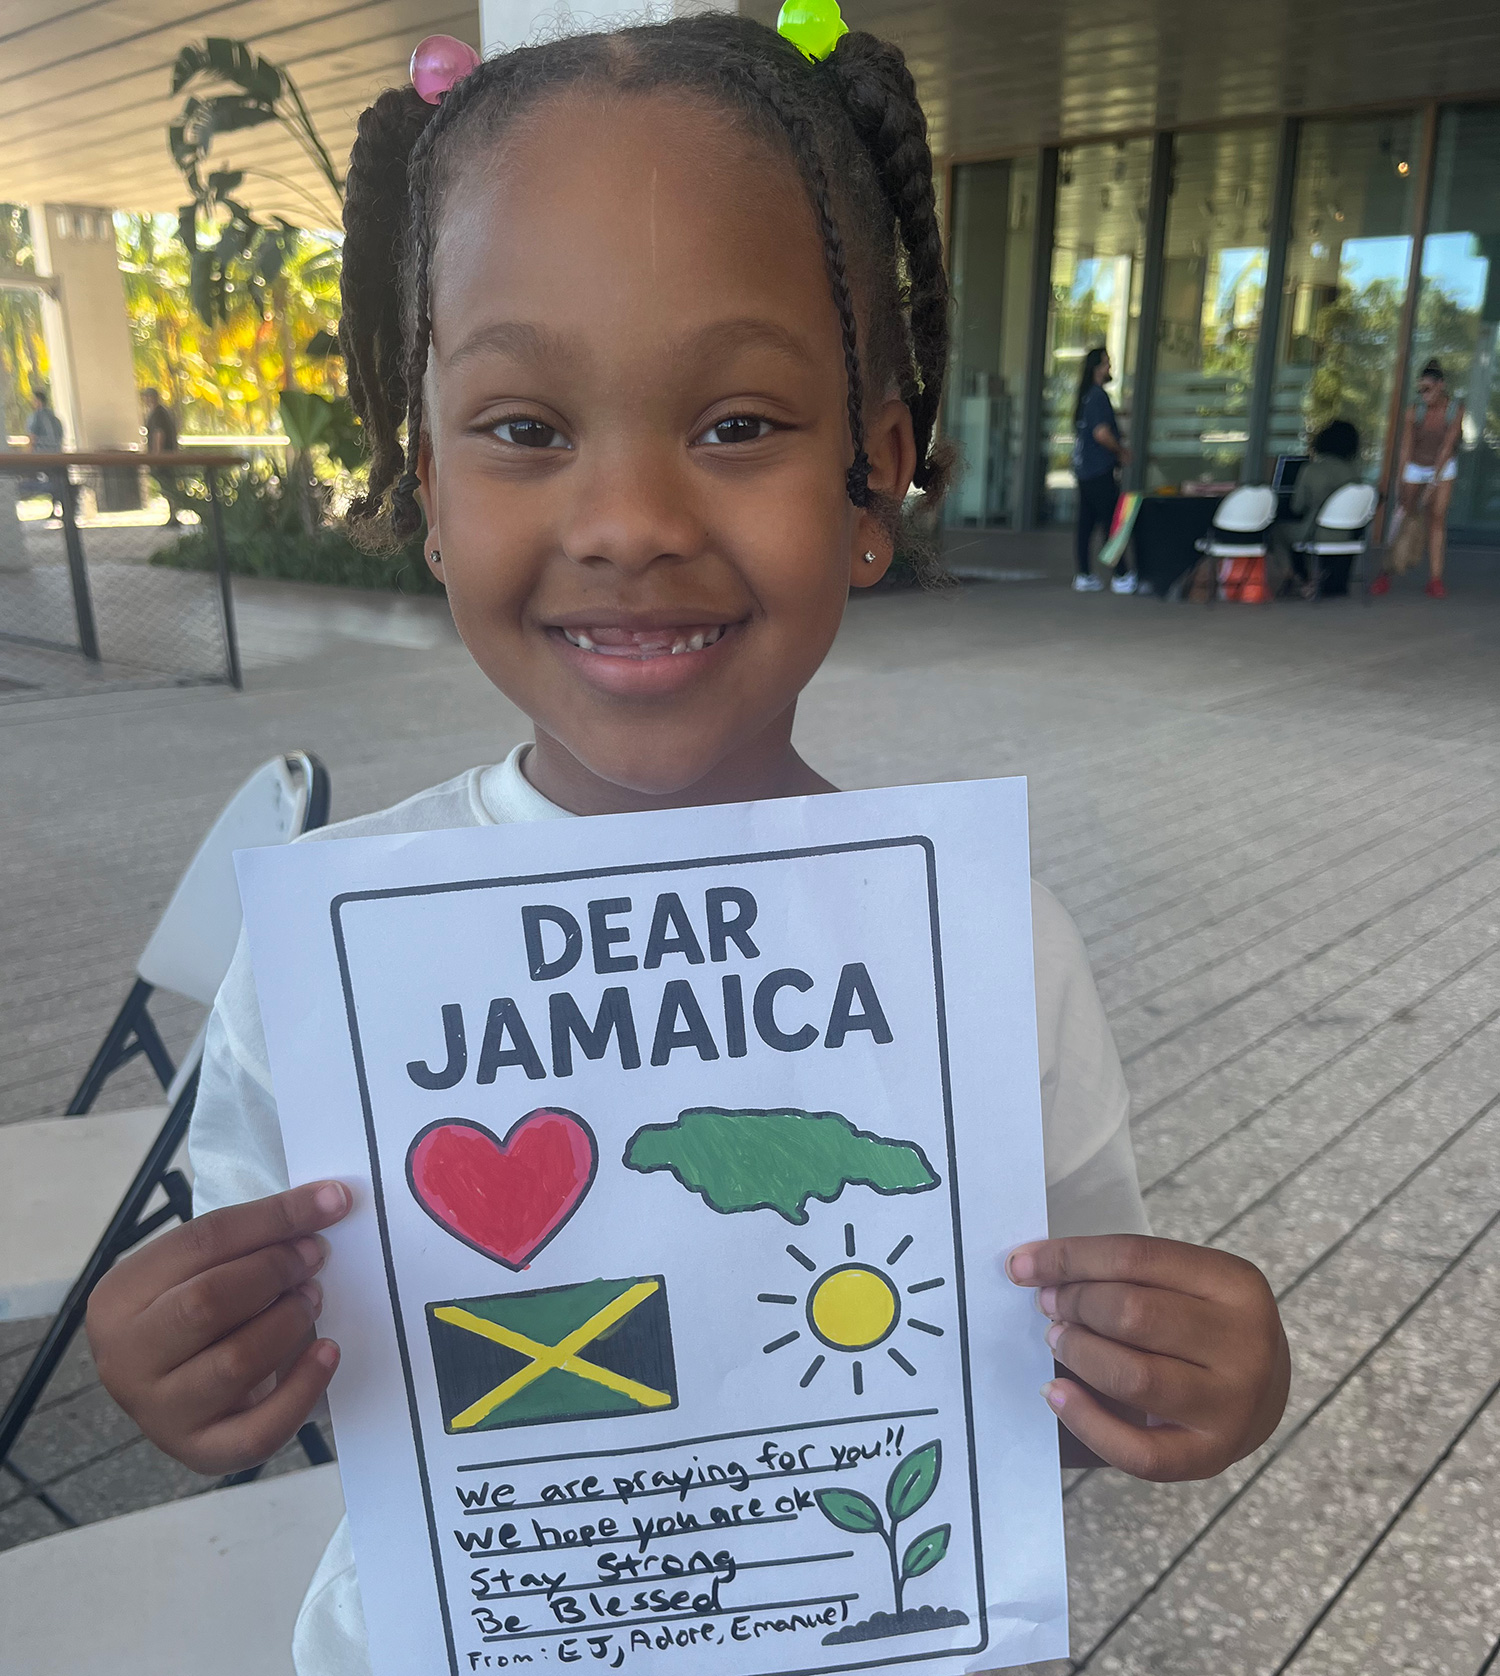 DEAR
JAMAICA
We are praying for you!!
We hope you are ok
Stay Strong
Be Blessed
From: EJ, Adore, Emanuel